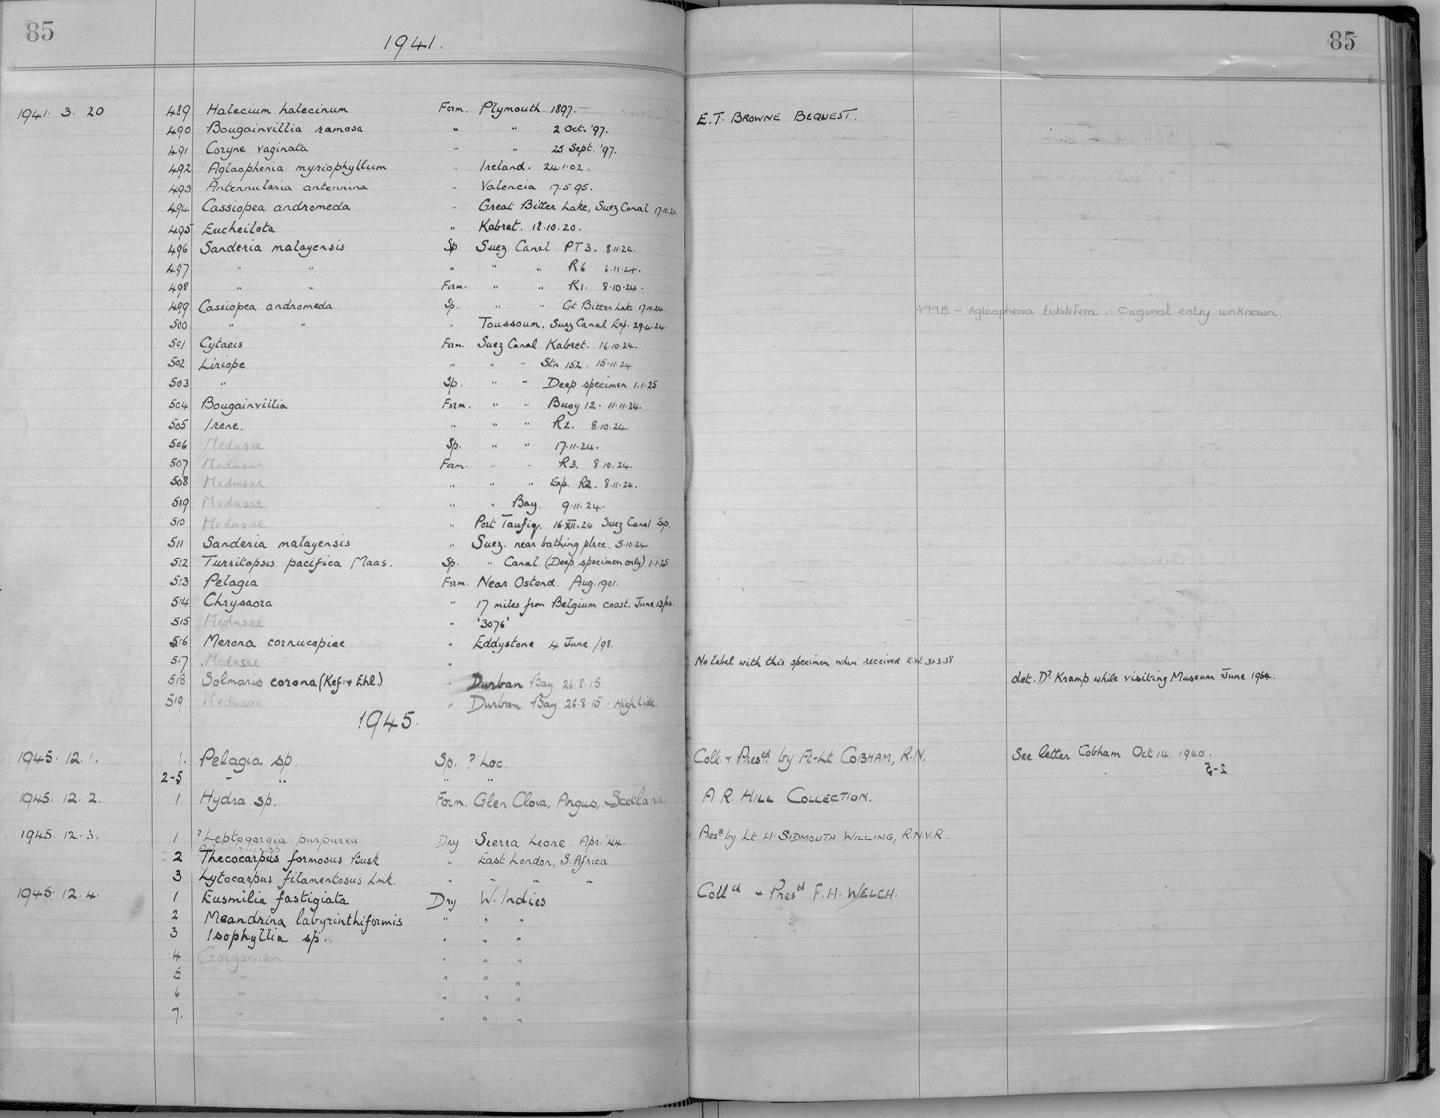 85
1941.
85
1941. 3. 20 489 Halecium halecinum Form. Plymouth 1897. E.T. BROWNE BEQUEST.
490 Bougainvillia ramosa " " 2 Oct. '97.
491 Coryne vaginata " " 25 Sept. '97.
492 Aglaophenia myriophyllum " Ireland. 24.1.02.
493 Antennularia antennina " Valencia 17.5.95.
494 Cassiopea andromeda " Great Bitter Lake, Suez Canal 17.10.24
495 Eucheilota " Kabret. 12.10.20.
496 Sanderia malayensis Sp Suez Canal PT3. 8.11.24.
497 " " " " " R6 6.11.24.
498 " " Form. " " R1. 8.10.24.
499 Cassiopea andromeda Sp. " " Gt Bitter Lake 17.10.24 499B - Aglaophenia tubilifera. Original entry unknown.
500 " " " Toussoum. Suez Canal Exp. 29.11.24
501 Cytaeis Form. Suez Canal Kabret. 16.10.24.
502 Liriope " " " Stn 152. 15.11.24
503 " Sp. " " Deep specimen 1.1.25
504 Bougainvillia Form. " " Buoy 12. 11.11.24.
505 Irene. " " " R2. 8.10.24.
506 Medusae Sp. " " 17.11.24.
507 Medusae Form. " " R3. 8.10.24.
508 Medusae " " " Exp. R2. 8.11.24.
509 Medusae " " Bay. 9.11.24.
510 Medusae " Port Taufiq. 16.XII.24 Suez Canal Exp.
511 Sanderia malayensis " Suez. near bathing place. 5.10.24
512 Turritopsis pacifica Maas. Sp. " Canal. (Deep specimen only) 1.1.25
513 Pelagia Form. Near Ostend. Aug. 1901.
514 Chrysaora " 17 miles from Belgium coast. June
515 Medusae " '3076'
516 Merona cornucopiae " Eddystone 4 June /98.
517 Medusae " No label with this specimen when received E.W. 31.3.38
518 Solmaris corona (Kef. & Ehl.) " Durban Bay 26.8.15 det. Dr Kramp while visiting Museum June 1954.
519 Medusae " Durban Bay 26.8.15. High tide.
1945.
1945. 12. 1. 1. Pelagia sp. Sp. ? Loc. Coll & Presd by Ft-Lt COBHAM, R.N. See letter Cobham Oct 14. 1940.
2-5 " " " " 2-5
1945. 12. 2. 1 Hydra sp. Form. Glen Clova, Angus, Scotland. A R. HILL COLLECTION.
1945 12. 3. 1 ?Leptogorgia purpurea Dry Sierra Leone. Apr. '44. Presd by Lt H. SIDMOUTH WILLING, R.N.V.R.
2 Thecocarpus formosus Busk " East London, S. Africa
3 Lytocarpus filamentosus Lmk. " " " "
1945. 12. 4. 1 Eusmilia fastigiata Dry W. Indies Colld & Presd F.H. WELCH.
2 Meandrina labyrinthiformis " " "
3 Isophyllia sp. " " "
4 Gorgonian " " "
5 " " " "
6 " " " "
7. " " " "